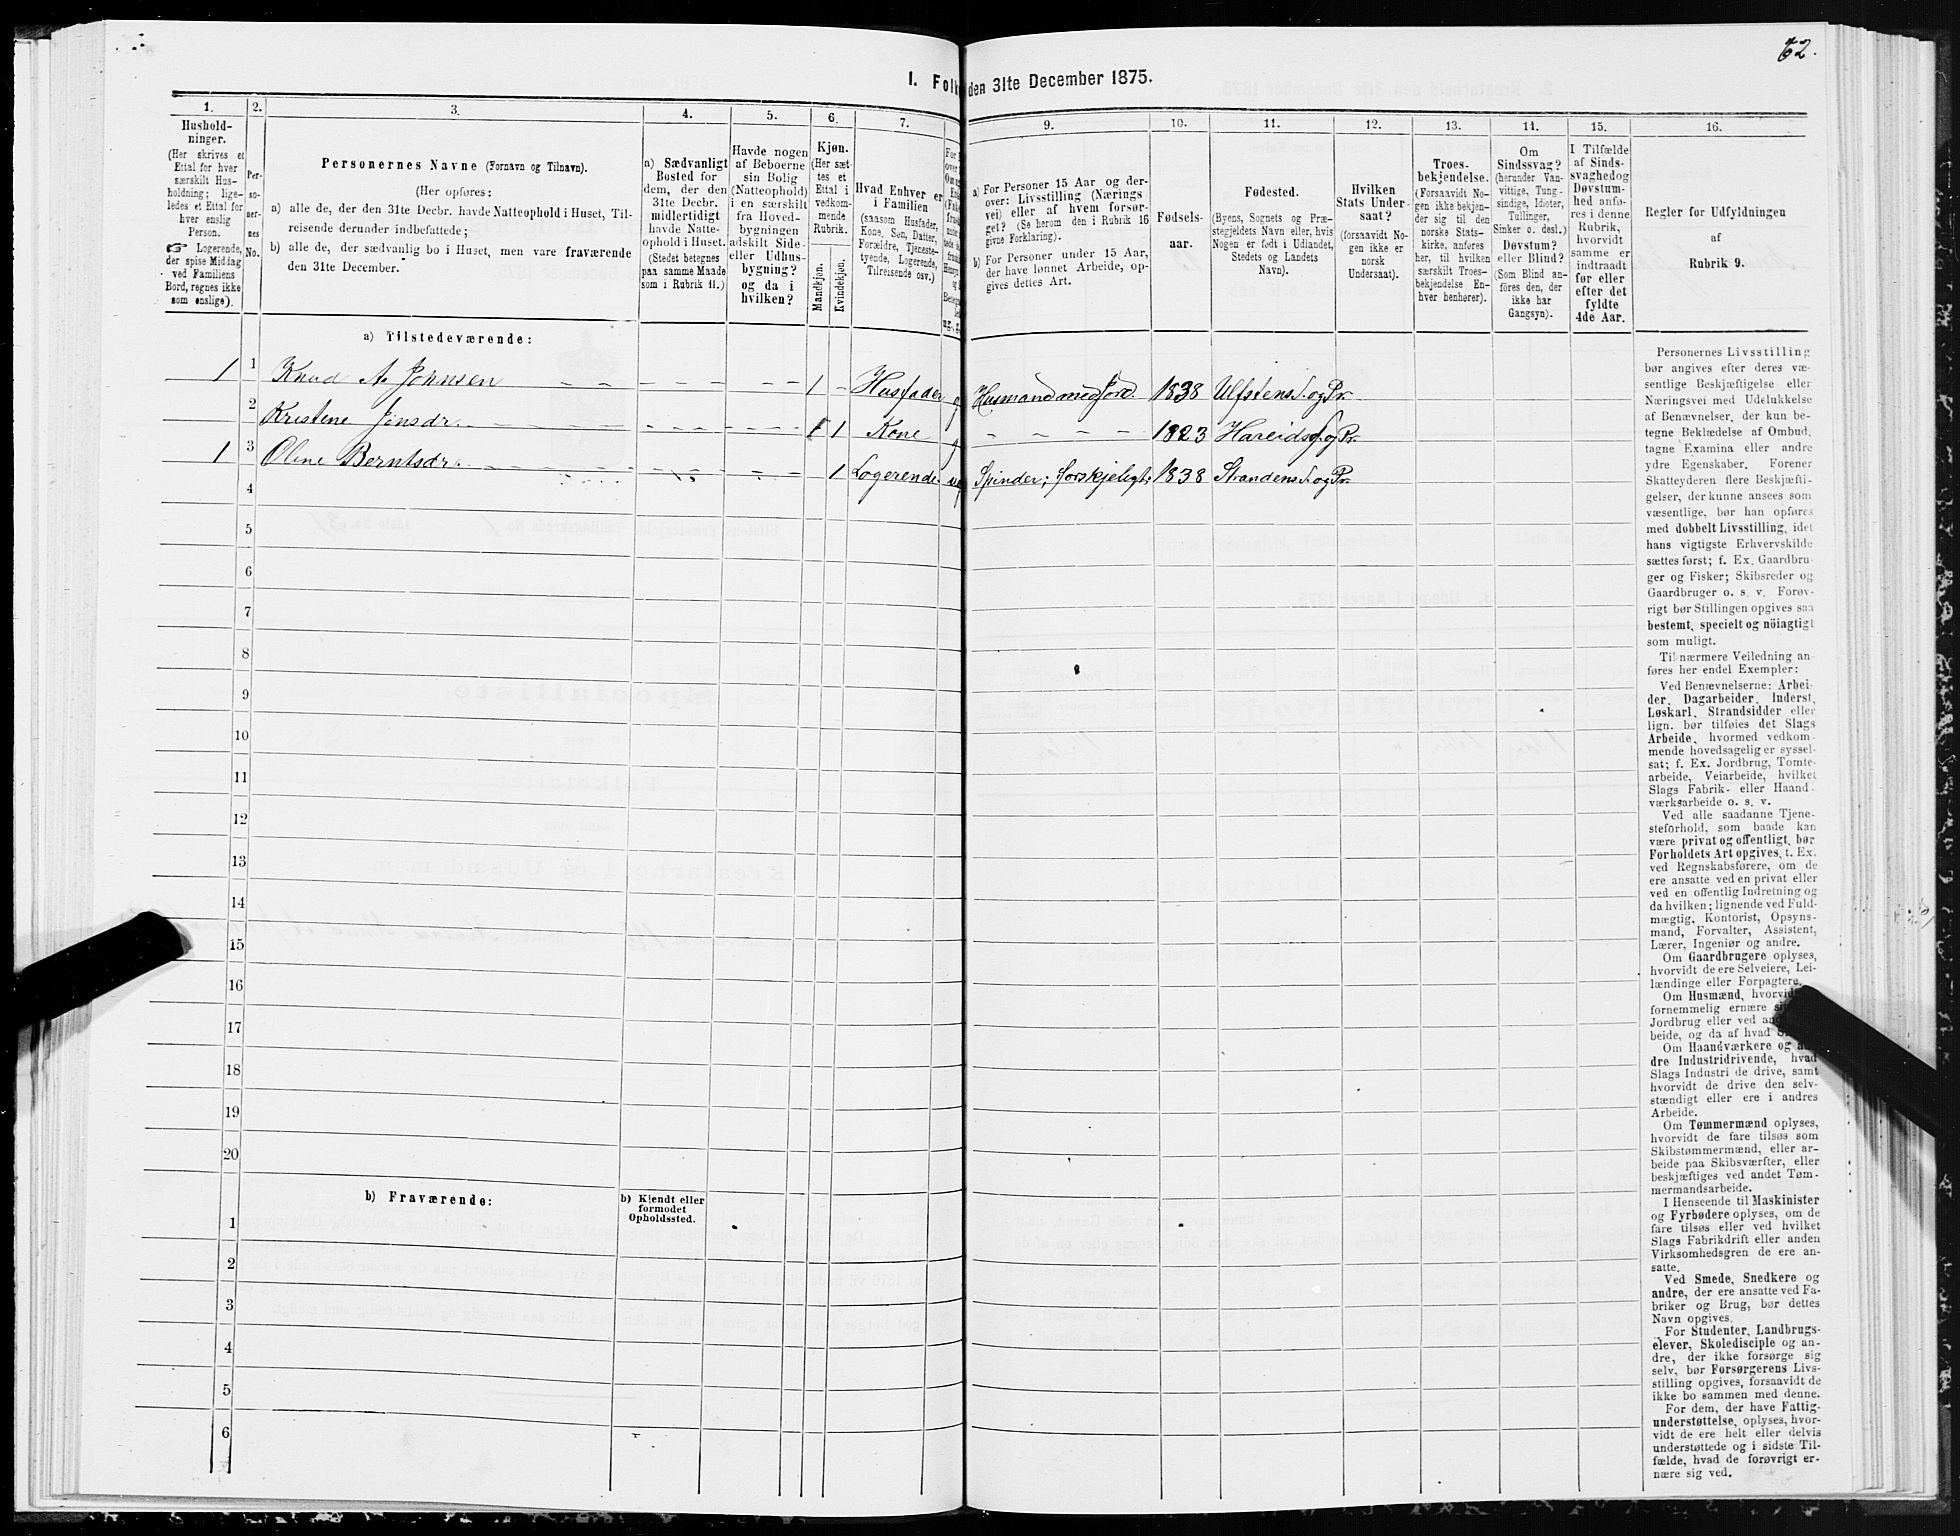 62.
I. Folk den 31te December 1875.
1. 2. 3. 4. 5. 6. 7. 9. 10. 11. 12. 13. 14. 15. 16.
Hushold-
ninger.
(Her skrives et
Ettal for hver
særskilt Hus-
holdning; lige-
ledes et Ettal for
hver enslig
Person.
☞ Logerende,
der spise Middag
ved Familiens
Bord, regnes ikke
som enslige).
Per-
so-
ner-
nes
No.
Personernes Navne (Fornavn og Tilnavn).
(Her opføres:
a) alle de, der den 31te Decbr. havde Natteophold i Huset, Til-
reisende derunder indbefattede;
b) alle de, der sædvanlig bo i Huset, men vare fraværende
den 31te December.
a) Sædvanligt
Bosted for
dem, der den
31te Decbr.
midlertidigt
havde Natte-
ophold i Huset.
(Stedet betegnes
paa samme Maade
som i Rubrik 11.)
Havde nogen
af Beboerne
sin Bolig
(Natteophold)
i en særskilt
fra Hoved-
bygningen
adskilt Side-
eller Udhus-
bygning?
og da i
hvilken?
Kjøn.
(Her sæt-
tes et
Ettal i
vedkom-
mende
Rubrik.
Mandkjøn.
Kvindekjøn.
Hvad Enhver er
i Familien
(saasom Husfader,
Kone, Søn, Datter,
Forældre, Tjeneste-
tyende, Logerende,
Tilreisende osv.)
a) For Personer 15 Aar og der-
over: Livsstilling (Nærings-
vei) eller af hvem forsør-
get? (Se herom den i Rubrik 16
givne Forklaring).
b) For Personer under 15 Aar,
der have lønnet Arbeide, op-
gives dettes Art.
Fødsels-
aar.
Fødested.
(Byens, Sognets og Præ-
stegjeldets Navn eller, hvis
Nogen er født i Udlandet,
Stedets og Landets
Navn).
Hvilken
Stats Under-
saat?
(forsaavidt No-
gen ikke er
norsk
Undersaat).
Troes-
bekjendelse.
(Forsaavidt No-
gen ikke bekjen-
der sig til den
norske Stats-
kirke, anføres
her, til hvilken
særskilt Troes-
bekjendelse En-
hver henhører).
Om
Sindssvag?
(herunder Van-
vittige, Tung-
sindige, Idioter,
Tullinger,
Sinker o. desl.)
Døvstum?
eller Blind?
(Som Blind an-
føres den, der
ikke har
Gangsyn).
I Tilfælde
af Sinds-
svaghed og
Døvstum-
hed anfø-
res i denne
Rubrik,
hvorvidt
samme er
indtraadt
før eller
efter det
fyldte
4de Aar.
Regler for Udfyldningen
af
Rubrik 9.
a) Tilstedeværende:
1 1 Knud A. Johnsen 1 Husfader Husmand med Jord. 1838 Ulfstens S. og Pr.
2 Kristene Jonsdr. 1 Kone 1823 Hareids S. og Pr.
1 3 Oline Berntsdr. 1 Logerende Spinder; forskjeligt; 1838 Strandens S. og Pr.
4
5
6
7
8
9
10
11
12
13
14
15
16
17
18
19
20
b) Fraværende:
b) Kjendt eller
formodet
Opholdssted.
1
2
3
4
5
6
Personernes Livsstilling
bør angives efter deres væ-
sentlige Beskjæftigelse eller
Næringsvei med Udelukkelse
af Benævnelser, der kun be-
tegne Beklædelse af Ombud,
tagne Examina eller andre
ydre Egenskaber. Forener
Skatteyderen flere Beskjæfti-
gelser, der kunne ansees som
væsentlige, bør han opføres
med dobbelt Livsstilling, idet
hans vigtigste Erhvervskilde
sættes først; f. Ex. Gaardbru-
ger og Fisker; Skibsreder og
Gaardbruger o. s. v. Forøv-
rigt bør Stillingen opgives saa
bestemt, specielt og nöiagtigt
som muligt.
Til nærmere Veiledning an-
føres her endel Exempler:
Ved Benævnelserne: Arbei-
der, Dagarbeider, Inderst,
Løskarl, Strandsidder eller
lign. bør tilføies det Slags
Arbeide, hvormed vedkom-
mende hovedsagelig er syssel-
sat; f. Ex. Jordbrug, Tomte-
arbeide, Veiarbeide, hvilket
Slags Fabrik- eller Haand-
værksarbeide o. s. v.
Ved alle saadanne Tjene-
steforhold, som baade kan
være privat og offentligt, bør
Forholdets Art opgives, t. Ex.
ved Regnskabsførere, om de
ere ansatte ved en privat eller
ved en offentlig Indretning og
da hvilken; lignende ved Fuld-
mægtig, Kontorist, Opsyns-
mand, Forvalter, Assistent,
Lærer, Ingeniør og andre.
Om Gaardbrugere oplyses,
hvorvidt de ere Selveiere, Lei-
lændinge eller Forpagtere.
Om Husmænd,
fornemmelig ernære
Jordbrug eller ved
beide, og da af hvad
Om Haandværkere og
dre Industridrivende, hvad
Slags Industri de drive, samt
hvorvidt de drive den selv-
stændigt eller ere i andres
Arbeide.
Om Tømmermænd oplyses,
hvorvidt de fare tilsøs som
Skibstømmermænd, eller ar-
beide paa Skibsværfter, eller
beskjæftiges ved andet Tøm-
mermandsarbeide.
I Henseende til Maskinister
og Fyrbødere oplyses, om de
fare tilsøs eller ved hvilket
Slags Fabrikdrift eller anden
Virksomhedsgren de ere an-
satte.
Ved Smede, Snedkere og
andre, der ere ansatte ved Fa-
briker og Brug, bør dettes
Navn opgives.
For Studenter, Landbrugs-
elever, Skoledisciple og an-
dre, der ikke forsørge sig
selv, bør Forsørgerens Livs-
stilling opgives, forsaavidt de
ikke bo sammen med denne.
For dem, der have Fattig-
understøttelse, oplyses, hvor-
vidt de ere helt eller delvis
understøttede og i sidste Til-
fælde, hvad de forøvrigt er-
nære sig ved.